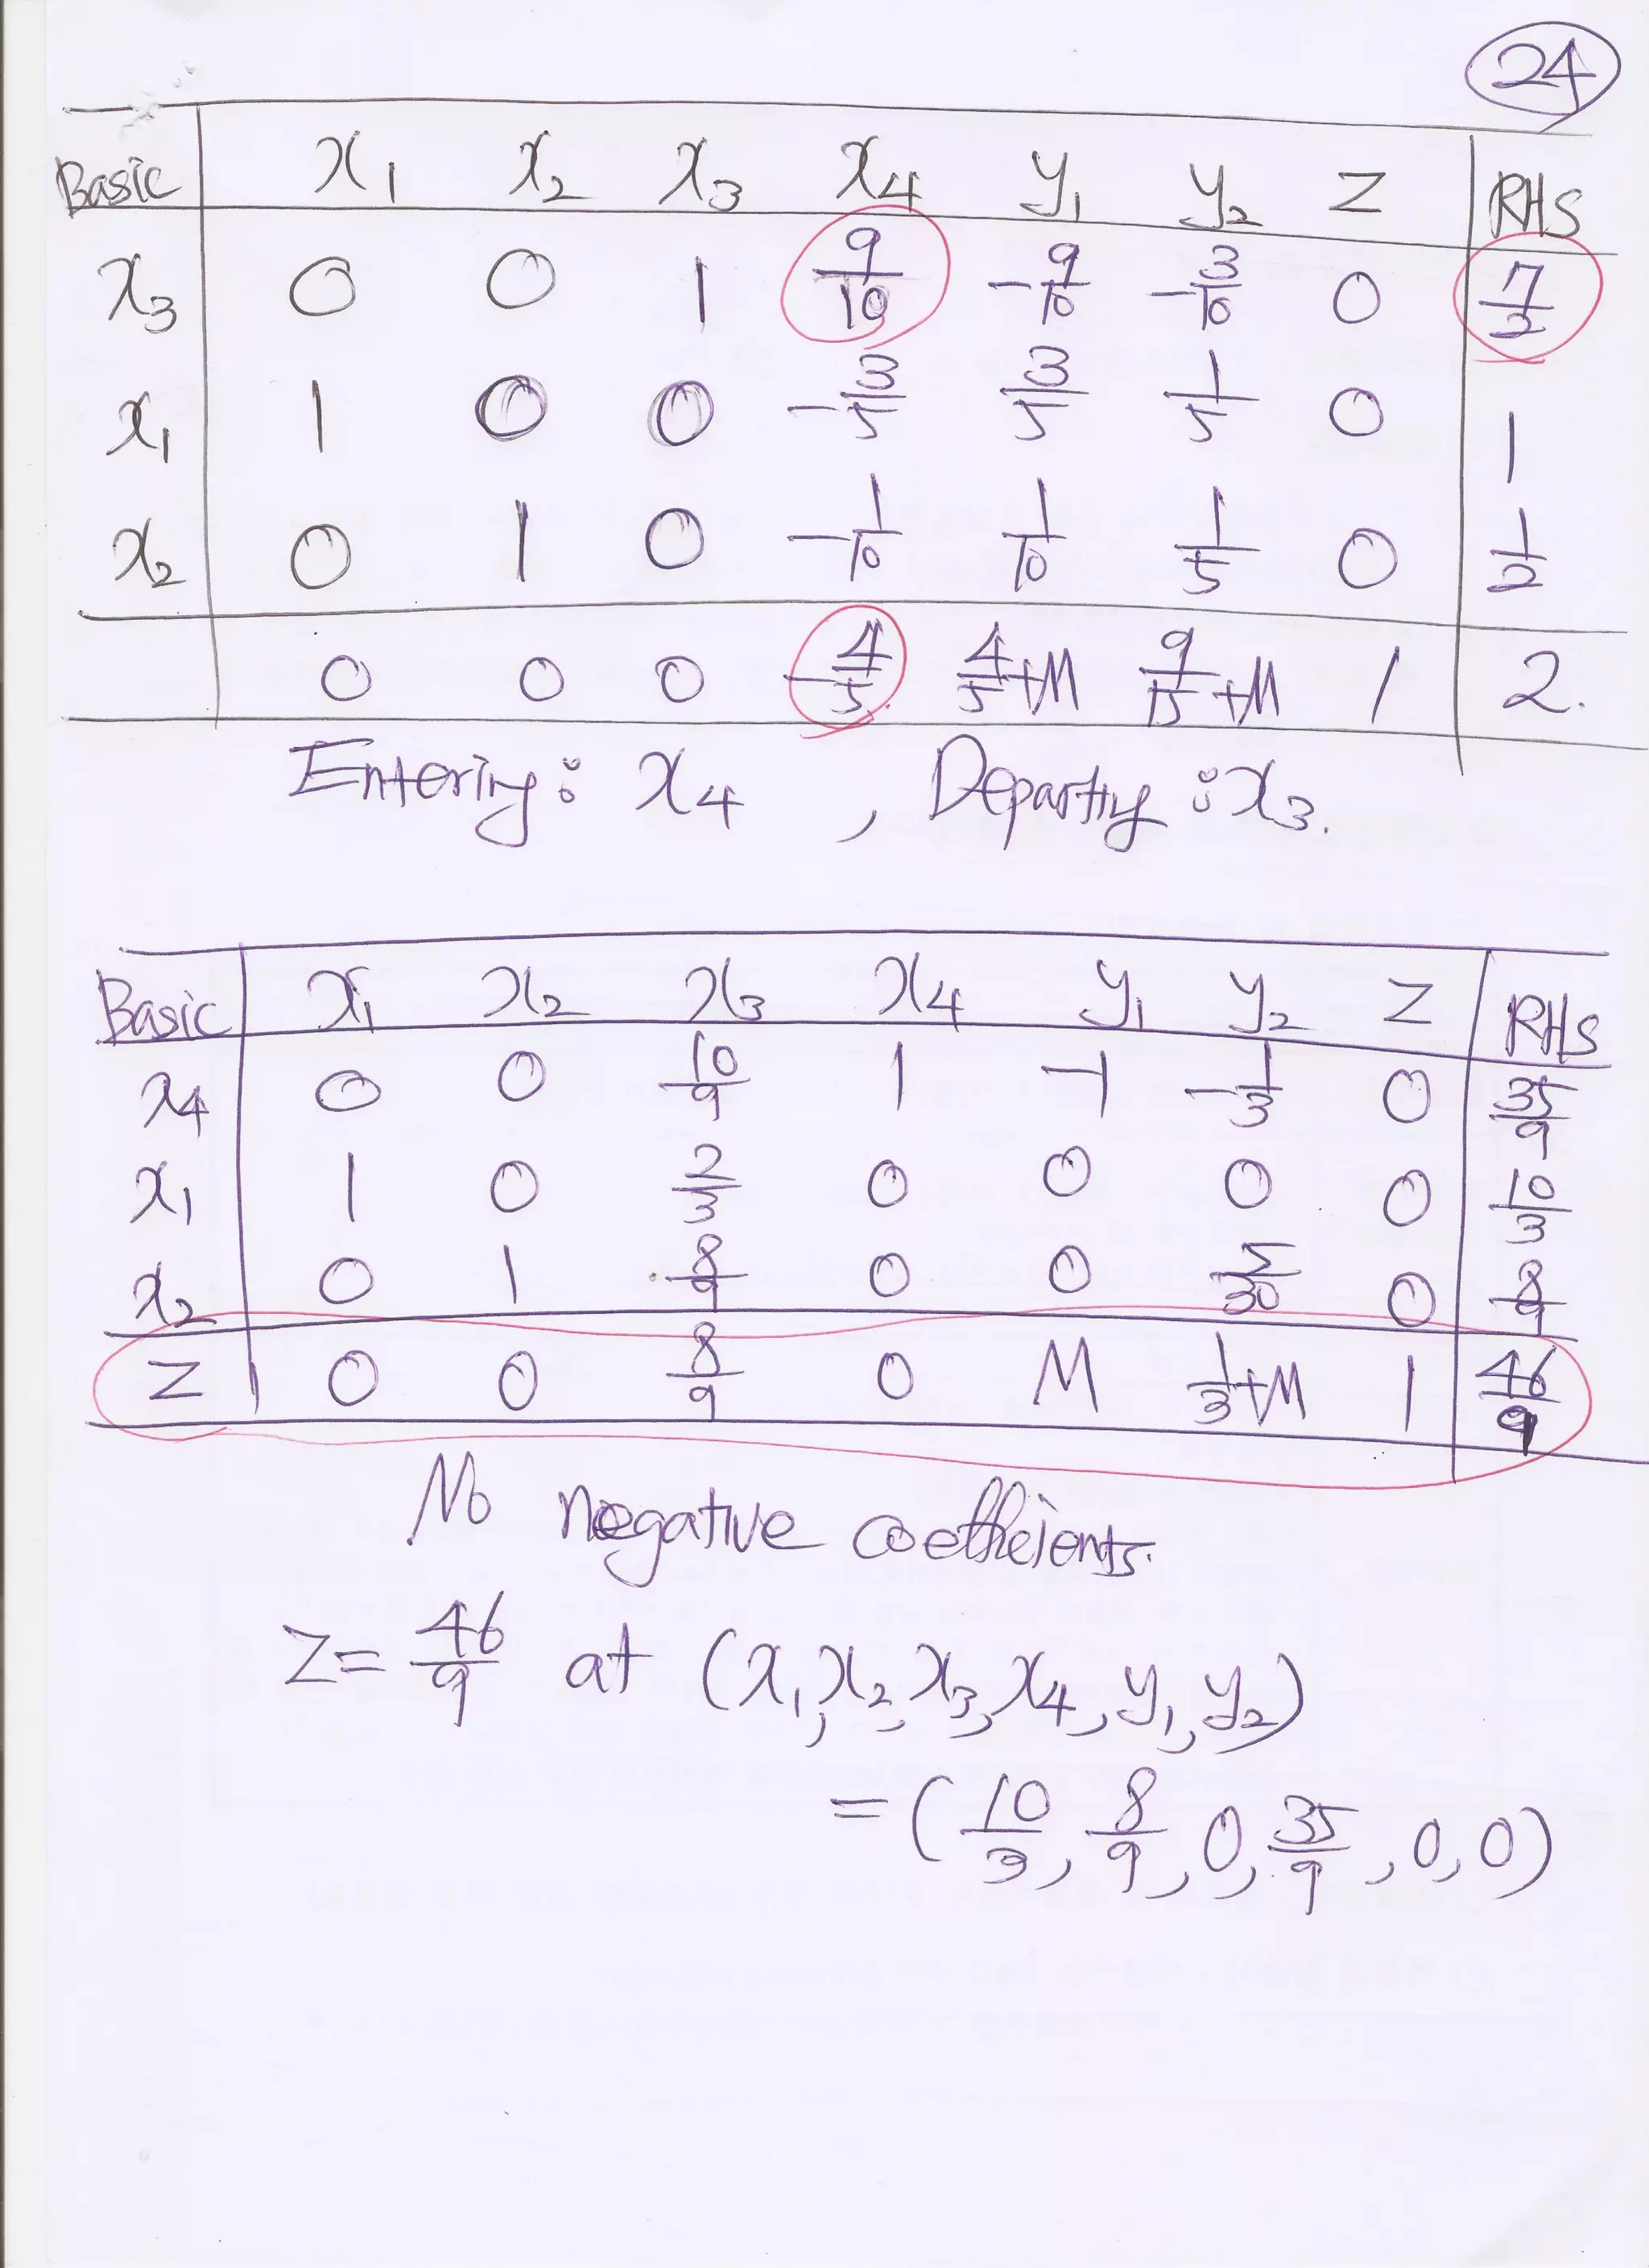 24
Basic x₁ x₂ x₃ x₄ y₁ y₂ Z RHS
x₃ 0 0 1 9/10 -9/10 -3/10 0 7/2
x₁ 1 0 0 -3/5 3/5 1/5 0 1
x₂ 0 1 0 -1/10 1/10 1/5 0 1/2
0 0 0 -4/5 4/5+M 9/15+M 1 2.
Entering: x₄ , Departing: x₃.
Basic x₁ x₂ x₃ x₄ y₁ y₂ Z RHS
x₄ 0 0 10/9 1 -1 -1/3 0 35/9
x₁ 1 0 2/3 0 0 0 0 10/3
x₂ 0 1 8/9 0 0 5/30 0 8/9
Z 0 0 8/9 0 M 1/3+M 1 46/9
No negative coefficients.
Z= 46/9 at (x₁, x₂, x₃, x₄, y₁, y₂)
= (10/3, 8/9, 0, 35/9, 0, 0)